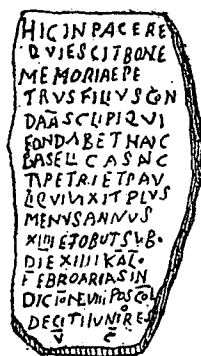 HIC IN PACE RE
QVIESCIT BONE
MEMORIAE PE
TRVS FILIVS CON
DAM ASCLIPI QVI
FONDABET HANC
BASELICA SANC
TI PETRI ET PAV
LI QVI VIXIT PLVS
MENUS ANNVS
XIIII ET OBUT SUB
DIE XIIII KAL
FEBROARIAS IN
DICIONE
V C